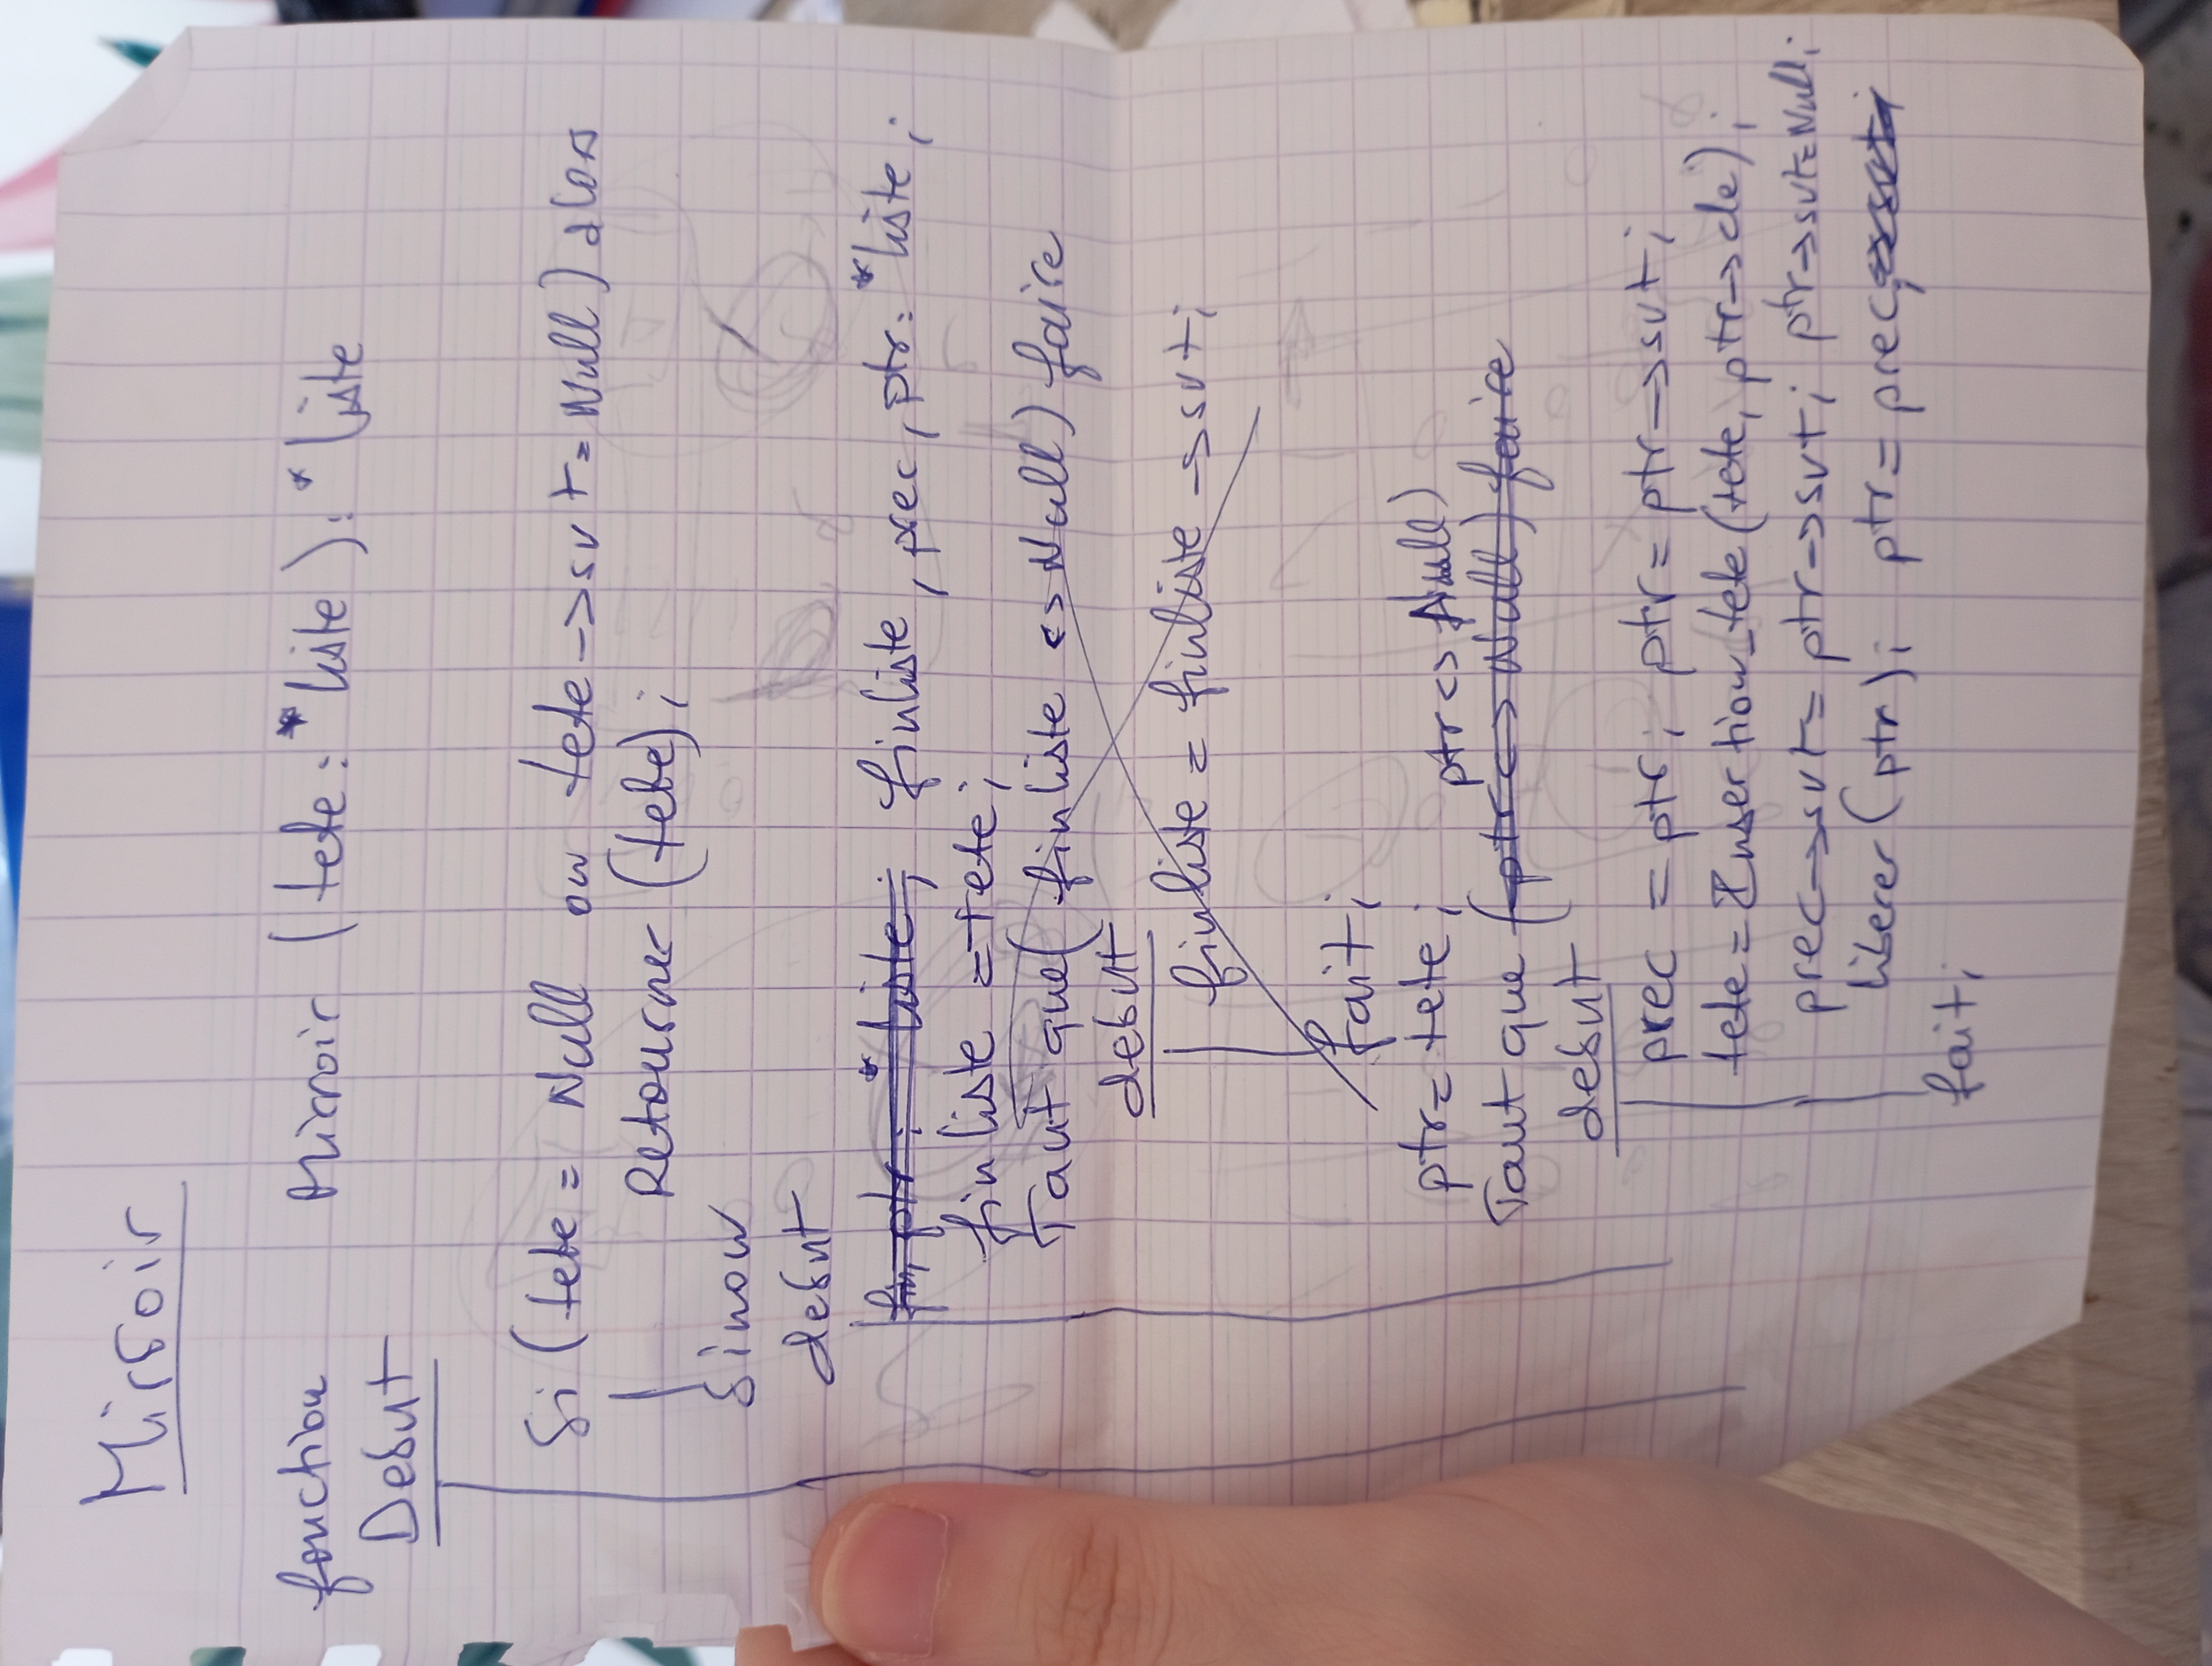 Mirroir
fonction Mirroir (tete : *liste) : *liste
Debut
Si (tete = Null ou tete ->svt = Null) alors
Retourner (tete) ;
Sinon
debut
fin, ptr : *liste ; finliste, prec, ptr : *liste ;
finliste = tete ;
Tant que ( finliste <> Null) faire
debut
finliste = finliste ->svt ;
fait ;
ptr = tete ;
ptr <> Null)
Tant que (ptr <> Null) faire
debut
prec = ptr ; ptr = ptr ->svt ;
tete = Insertion_tete (tete, ptr->cle) ;
prec->svt = ptr->svt ; ptr->svt = Null ;
liberer (ptr) ; ptr = prec ;
fait ;